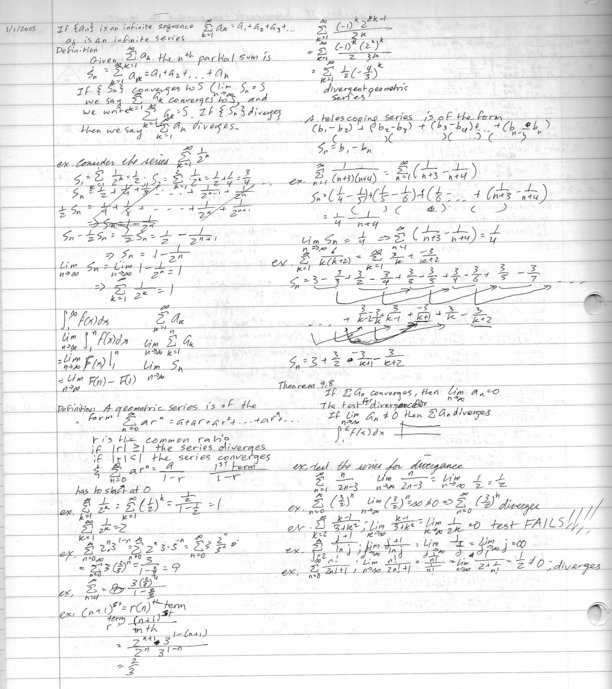 1/1/2005
If {an} is an infinite sequence ∞Σk=1 ak = a1+a2+a3+...
ak is an infinite series
Definition
Given ∞Σk=1 ak the nth partial sum is
Sn = nΣk=1 ak = a1+a2+...+an
If {Sn} converges to S (lim n→∞ Sn = S
we say ∞Σk=1 ak converges to S, and
we write ∞Σk=1 ak = S. If {Sn} diverges
then we say ∞Σk=1 an diverges.
ex. Consider the series ∞Σk=1 1/2^k
1/2 Sn = 1/4 + 1/8 + ... + 1/2^n + 1/2^(n+1)
Sn - 1/2 Sn = 1/2 Sn = 1/2 - 1/2^(n+1)
⇒ Sn = 1 - 1/2^n
lim n→∞ Sn = lim n→∞ 1 - 1/2^n = 1
⇒ ∞Σk=1 1/2^k = 1
∫1^∞ f(x)dx ∞Σk=1 ak
lim n→∞ ∫1^n f(x)dx lim n→∞ nΣk=1 ak
= lim n→∞ F(x)|1^n lim n→∞ Sn
= lim n→∞ F(n) - F(1)
Definition A geometric series is of the
form ∞Σn=0 ar^n = a+ar+ar²+...+ar^n...
r is the common ratio
if |r| ≥ 1 the series diverges
if |r| < 1 the series converges
& ∞Σn=0 ar^n = a/(1-r) 1st term/(1-r)
has to start at 0
ex. ∞Σk=1 1/2^k = ∞Σk=1 (1/2)^k = (1/2)/(1-1/2) = 1
= ∞Σn=0 3(2/3)^n = 3/(1-2/3) = 9
ex. (n+1)st = r(n)th term
term
r = (n+1)st/nth
= 2^(n+1) • 3^(1-(n+1))/2^n 3^(1-n)
= 2/3
∞Σk=1 (-1)^k 2^(2k-1)/3^k
= ∞Σk=1 (-1)^k (2²)^k/2 3^k
= ∞Σk=1 1/2(-4/3)^k
divergent geometric
series
A telescoping series is of the form
(b1-b2) + (b2-b3) + (b3-b4)+...+(bn-1 - bn)
Sn = b1 - bn
ex. ∞Σn=1 1/(n+3)(n+4) = ∞Σn=1 (1/(n+3) - 1/(n+4))
Sn = (1/4-1/5)+(1/5-1/6)+(1/6 ... + (1/(n+3) - 1/(n+4))
= 1/4 - 1/(n+4)
lim n→∞ Sn = 1/4 ⇒ ∞Σn=1 (1/(n+3) - 1/(n+4)) = 1/4
ex. ∞Σk=1 6/k(k+2) = ∞Σk=1 3/k + -3/(k+2)
Sn = 3 - 3/3 + 3/2 - 3/4 + 3/3 - 3/5 + 3/4 - 3/6 + 3/5 - 3/7
Sn = 3 + 3/2 - 3/(k+1) - 3/(k+2)
Theorem 9.8
If Σan converges, then lim n→∞ an = 0
The test for divergence
If lim n→∞ an ≠ 0 then Σan diverges
∫1^∞ f(x)dx
ex. test the series for divergence
∞Σn=1 n/(2n-3) lim n→∞ n/(2n-3) = lim n→∞ 1/2 = 1/2
ex. ∞Σn=0 (3/2)^n lim n→∞ (3/2)^n = ∞ ≠ 0 ⇒ ∞Σn=0 (3/2)^n diverges
ex. ∞Σk=2 (k-1)/(3+k²); lim k→∞ (k-1)/(3+k²) = lim k→∞ 1/2k = 0 test FAILS!!!!
ex. ∞Σj=2 (j+1)/ln j; lim j→∞ (j+1)/ln j = lim j→∞ 1/(1/j) = lim j→∞ j = ∞
ex. ∞Σn=0 n!/(2n!+1); lim n→∞ n!/(2n!+1) = lim n→∞ 1/(2+1/n!) = 1/2 ≠ 0; diverges